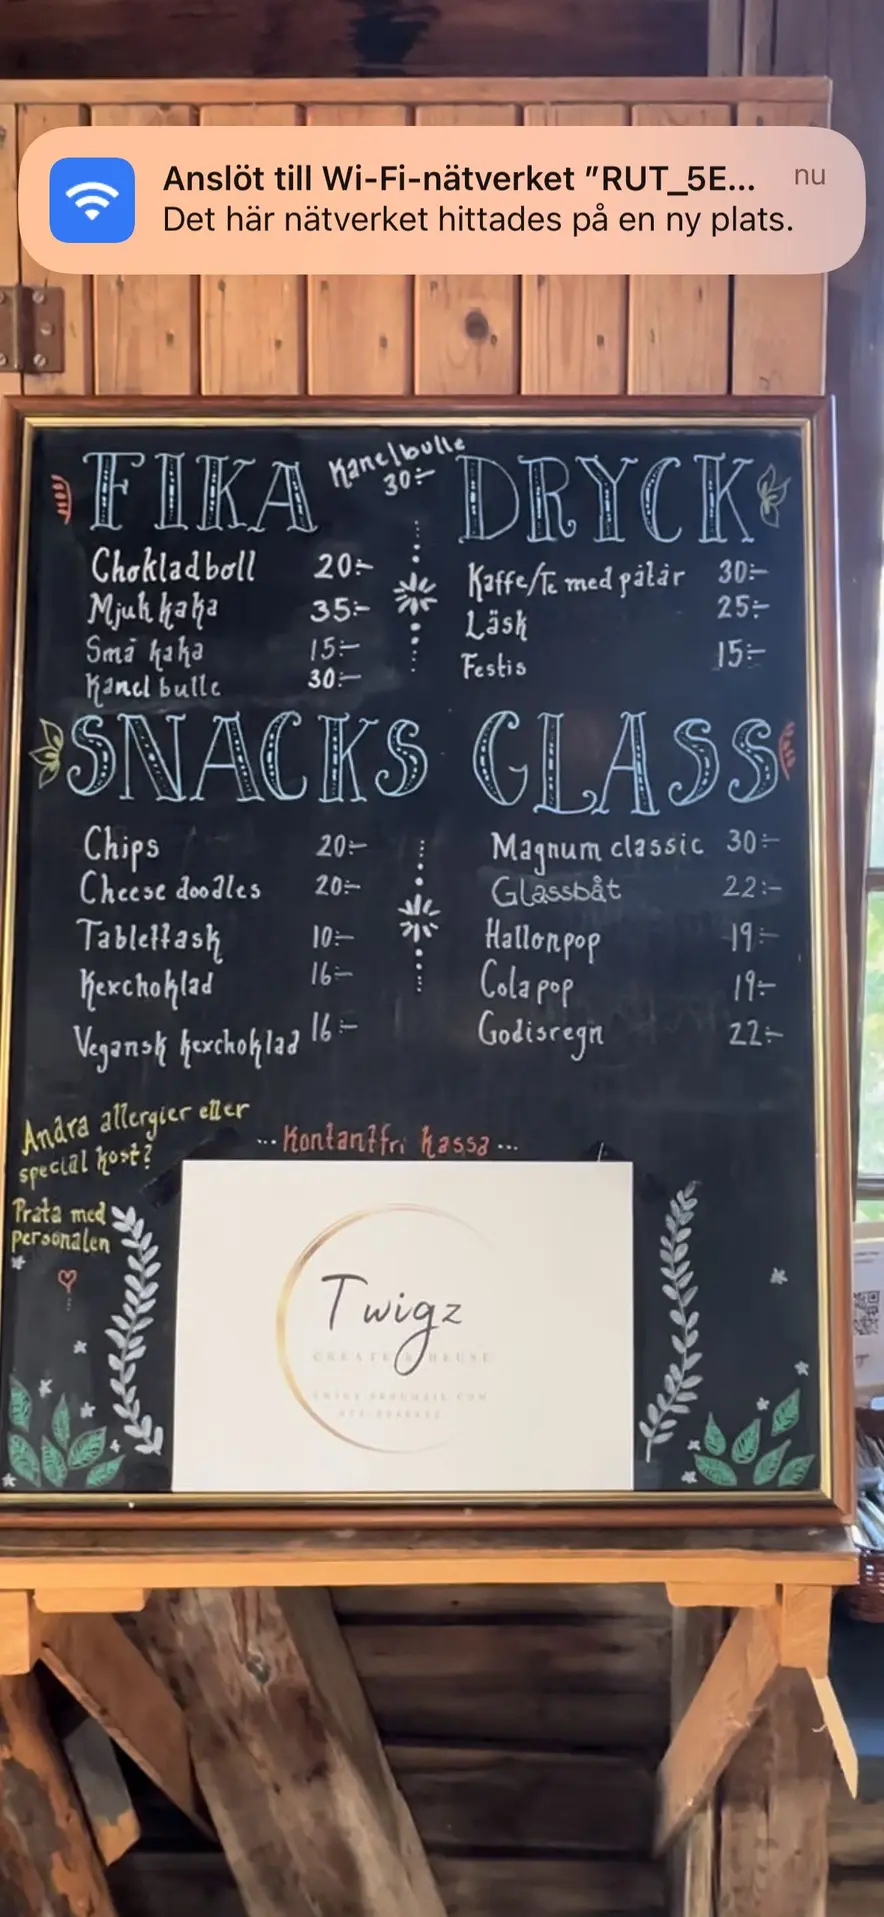 Anslöt till Wi-Fi-nätverket "RUT_5E... nu
Det här nätverket hittades på en ny plats.
FIKA
Kanelbulle
30:-
Chokladboll 20:-
Mjuk kaka 35:-
Små kaka 15:-
Kanel bulle 30:-
DRYCK
Kaffe/Te med påtår 30:-
Läsk 25:-
Festis 15:-
SNACKS
Chips 20:-
Cheese doodles 20:-
Tablettask 10:-
Kexchoklad 16:-
Vegansk kexchoklad 16:-
GLASS
Magnum classic 30:-
Glassbåt 22:-
Hallonpop 19:-
Cola pop 19:-
Godisregn 22:-
Andra allergier eller
special kost?
Prata med
personalen
... Kontantfri kassa ...
Twigz
CREATE & REUSE